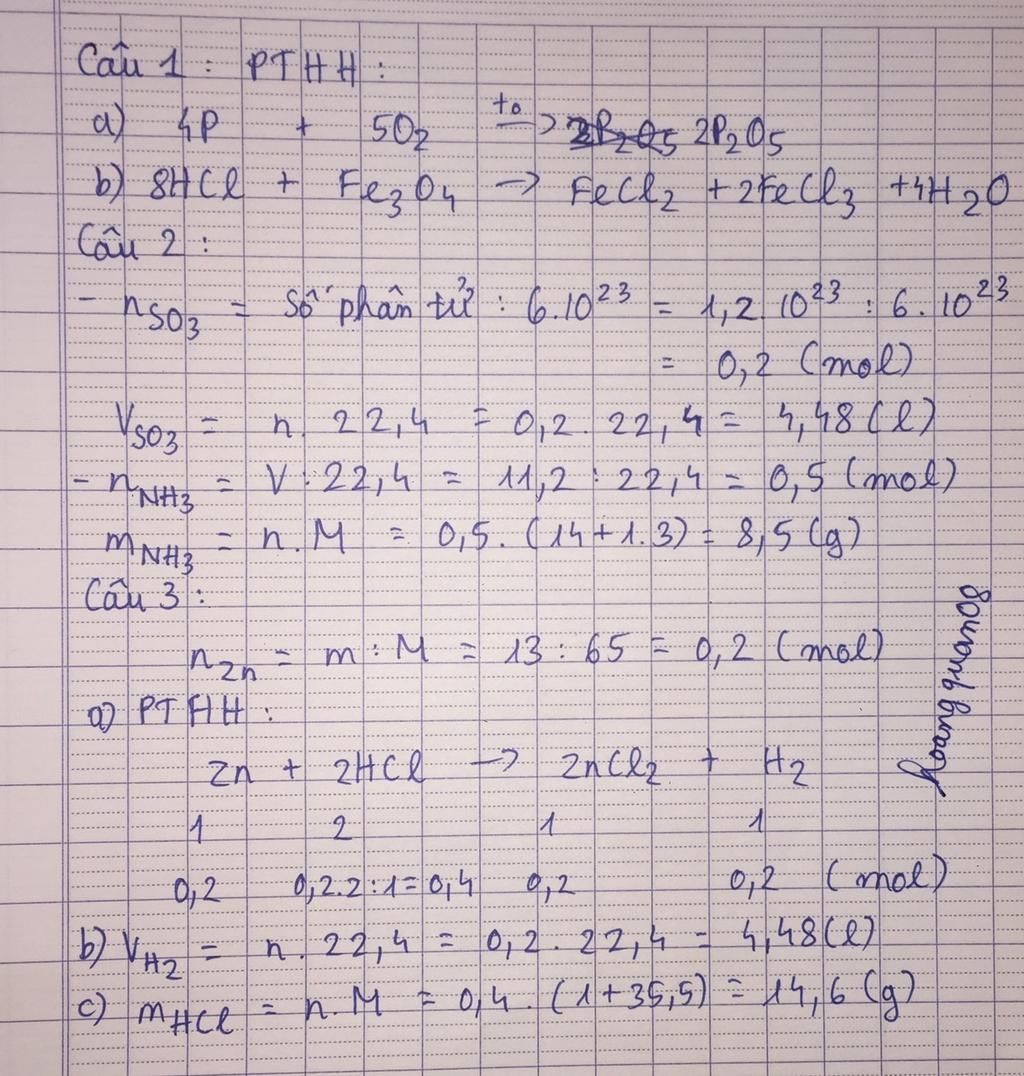 Câu 1 : PTHH :
a) 4P + 5O2 to → 2P2O5
b) 8HCl + Fe3O4 → FeCl2 + 2FeCl3 + 4H2O
Câu 2 :
- nSO3 = Số phân tử : 6.10^23 = 1,2.10^23 : 6.10^23
= 0,2 (mol)
VSO3 = n. 22,4 = 0,2. 22,4 = 4,48(l)
- nNH3 = V : 22,4 = 11,2 : 22,4 = 0,5 (mol)
mNH3 = n.M = 0,5. (14+1.3) = 8,5(g)
Câu 3 :
nZn = m : M = 13 : 65 = 0,2 (mol)
a) PTHH :
Zn + 2HCl → ZnCl2 + H2
1 2 1 1
0,2 0,2.2:1=0,4 0,2 0,2 (mol)
b) VH2 = n. 22,4 = 0,2. 22,4 = 4,48(l)
c) mHCl = n.M = 0,4. (1+35,5) = 14,6(g)